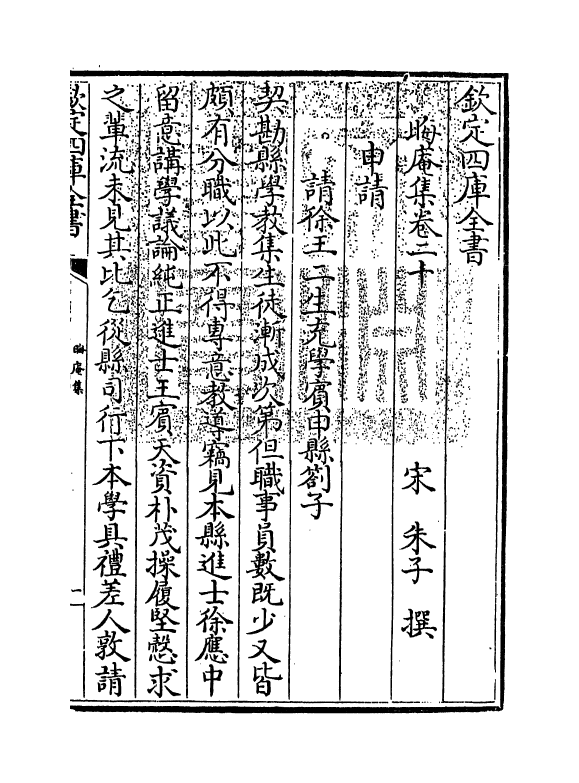 欽定四庫全書
晦庵集卷二十
宋 朱子 撰
申請
請徐王二生充學賓申縣劄子
契勘縣學教集生徒漸成次第但職事員數既少又皆
頗有分職以此不得專意教導竊見本縣進士徐應中
留意講學議論純正進士王賓天資朴茂操履堅慤求
之輩流未見其比乞從縣司行下本學具禮差人敦請
欽定四庫全書
晦庵集